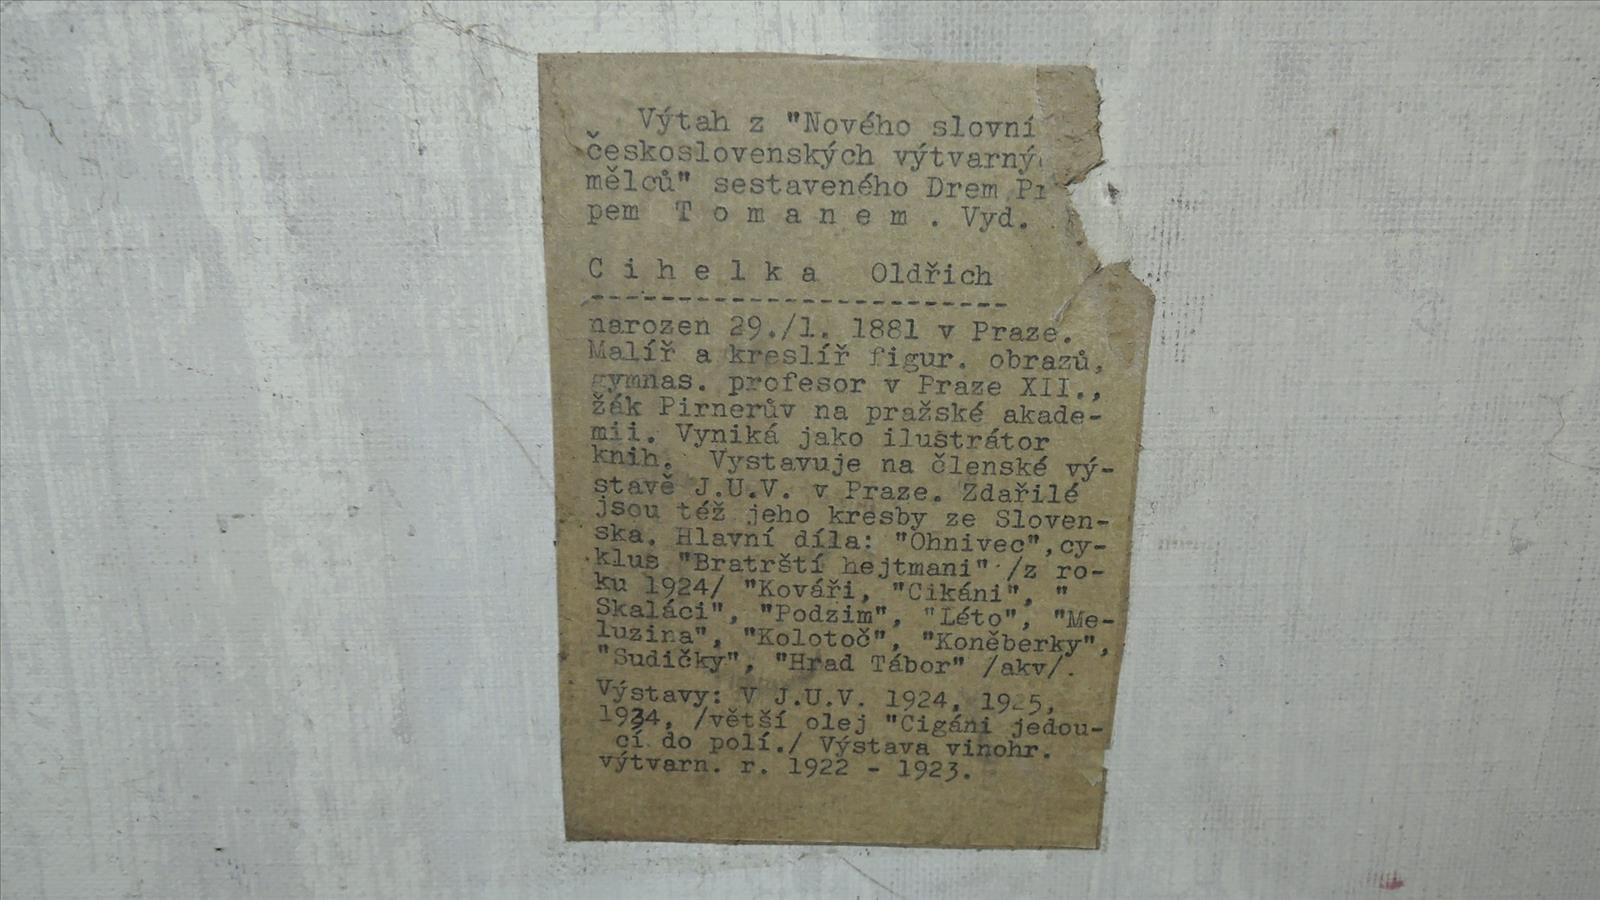 Výtah z "Nového slovní
československých výtvarný
mělců" sestaveného Drem Pr
pem T o m a n e m . Vyd.
C i h e l k a Oldřich
------------------------
narozen 29./1. 1881 v Praze.
Malíř a kreslíř figur. obrazů,
gymnas. profesor v Praze XII.,
žák Pirnerův na pražské akade-
mii. Vyniká jako ilustrátor
knih. Vystavuje na členské vý-
stavě J.U.V. v Praze. Zdařilé
jsou též jeho kresby ze Sloven-
ska. Hlavní díla: "Ohnivec",cy-
klus "Bratrští hejtmani" /z ro-
ku 1924/ "Kováři, "Cikáni", "
Skaláci", "Podzim", "Léto", "Me-
luzina", "Kolotoč", "Koněberky",
"Sudičky", "Hrad Tábor" /akv/.
Výstavy: V J.U.V. 1924, 1925,
1934, /větší olej "Cigáni jedou-
cí do polí./ Výstava vinohr.
výtvarn. r. 1922 - 1923.